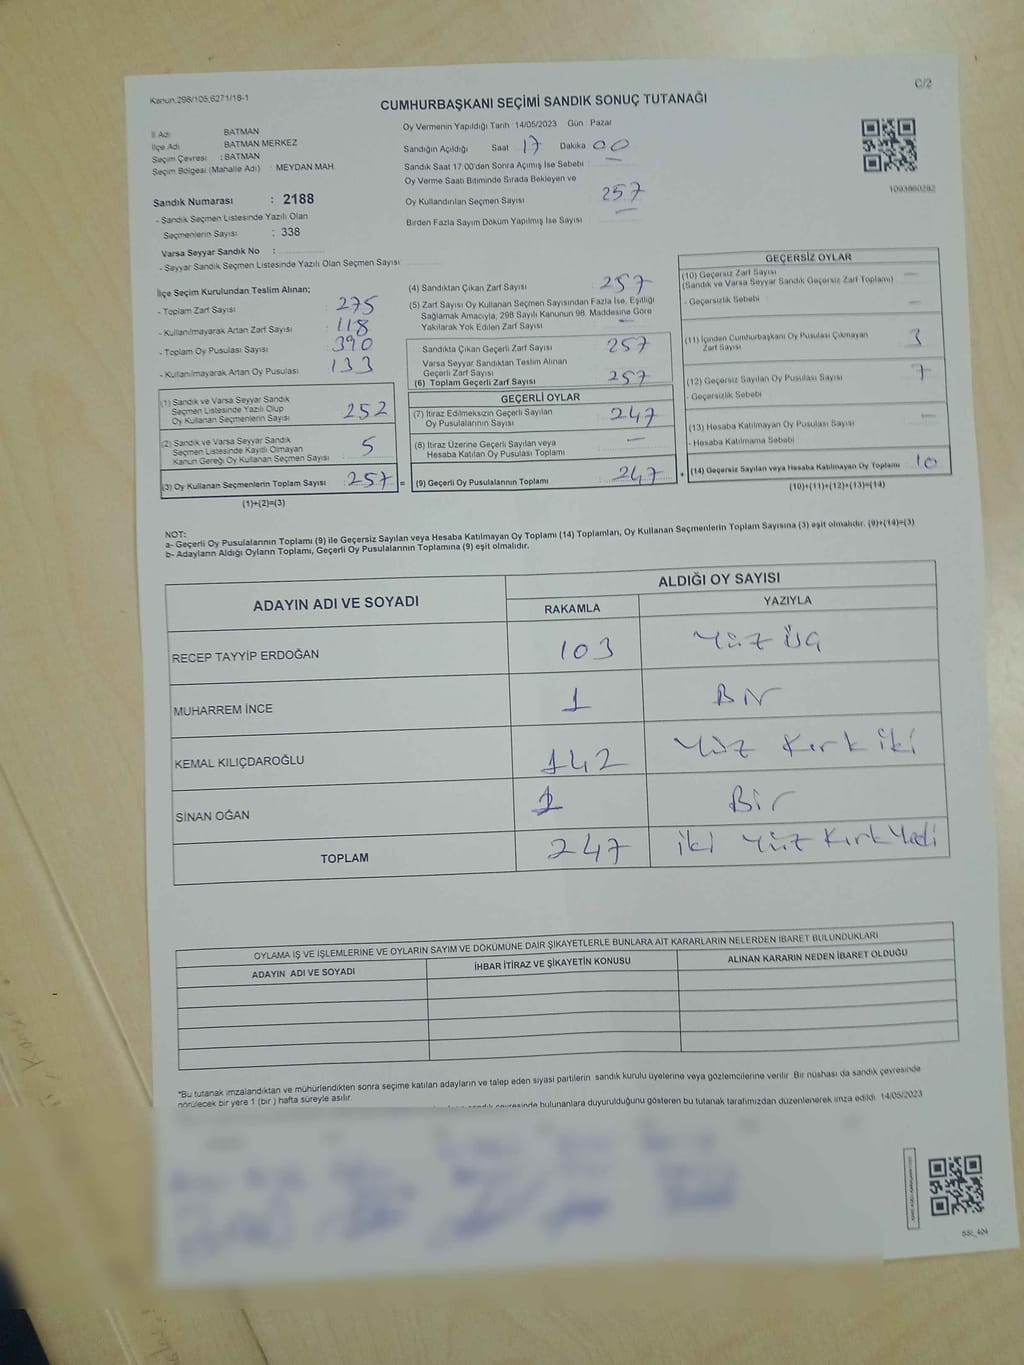 Kanun.298/105,6271/18-1
C/2
CUMHURBAŞKANI SEÇİMİ SANDIK SONUÇ TUTANAĞI
İl Adı BATMAN
İlçe Adı BATMAN MERKEZ
Seçim Çevresi : BATMAN
Seçim Bölgesi (Mahalle Adı) : MEYDAN MAH.
Sandık Numarası : 2188
- Sandık Seçmen Listesinde Yazılı Olan
Seçmenlerin Sayısı : 338
Varsa Seyyar Sandık No :
- Seyyar Sandık Seçmen Listesinde Yazılı Olan Seçmen Sayısı:
Oy Vermenin Yapıldığı Tarih :14/05/2023 Gün : Pazar
Sandığın Açıldığı Saat : 17 Dakika : 00
Sandık Saat 17:00'den Sonra Açımış İse Sebebi :
Oy Verme Saati Bitiminde Sırada Bekleyen ve
Oy Kullandırılan Seçmen Sayısı : 257
Birden Fazla Sayım Döküm Yapılmış İse Sayısı :
1093860282
İlçe Seçim Kurulundan Teslim Alınan;
- Toplam Zarf Sayısı : 275
- Kullanılmayarak Artan Zarf Sayısı : 118
- Toplam Oy Pusulası Sayısı : 390
- Kullanılmayarak Artan Oy Pusulası : 133
(1) Sandık ve Varsa Seyyar Sandık
Seçmen Listesinde Yazılı Olup
Oy Kullanan Seçmenlerin Sayısı : 252
(2) Sandık ve Varsa Seyyar Sandık
Seçmen Listesinde Kayıtlı Olmayan
Kanun Gereği Oy Kullanan Seçmen Sayısı : 5
(3) Oy Kullanan Seçmenlerin Toplam Sayısı : 257 =
(1)+(2)=(3)
(4) Sandıktan Çıkan Zarf Sayısı : 257
(5) Zarf Sayısı Oy Kullanan Seçmen Sayısından Fazla İse, Eşitliği
Sağlamak Amacıyla, 298 Sayılı Kanunun 98. Maddesine Göre
Yakılarak Yok Edilen Zarf Sayısı : —
Sandıkta Çıkan Geçerli Zarf Sayısı : 257
Varsa Seyyar Sandıktan Teslim Alınan
Geçerli Zarf Sayısı :
(6) Toplam Geçerli Zarf Sayısı : 257
GEÇERLİ OYLAR
(7) İtiraz Edilmeksizin Geçerli Sayılan
Oy Pusulalarının Sayısı : 247
(8) İtiraz Üzerine Geçerli Sayılan veya
Hesaba Katılan Oy Pusulası Toplamı : —
(9) Geçerli Oy Pusulalarının Toplamı : 247 +
GEÇERSİZ OYLAR
(10) Geçersiz Zarf Sayısı : —
(Sandık ve Varsa Seyyar Sandık Geçersiz Zarf Toplamı)
- Geçersizlik Sebebi : —
(11) İçinden Cumhurbaşkanı Oy Pusulası Çıkmayan
Zarf Sayısı : 3
(12) Geçersiz Sayılan Oy Pusulası Sayısı : 7
- Geçersizlik Sebebi :
(13) Hesaba Katılmayan Oy Pusulası Sayısı : —
- Hesaba Katılmama Sebebi :
(14) Geçersiz Sayılan veya Hesaba Katılmayan Oy Toplamı : 10
(10)+(11)+(12)+(13)=(14)
NOT:
a- Geçerli Oy Pusulalarının Toplamı (9) ile Geçersiz Sayılan veya Hesaba Katılmayan Oy Toplamı (14) Toplamları, Oy Kullanan Seçmenlerin Toplam Sayısına (3) eşit olmalıdır. (9)+(14)=(3)
b- Adayların Aldığı Oyların Toplamı, Geçerli Oy Pusulalarının Toplamına (9) eşit olmalıdır.
ADAYIN ADI VE SOYADI ALDIĞI OY SAYISI
RAKAMLA YAZIYLA
RECEP TAYYİP ERDOĞAN 103 Yüz Üç
MUHARREM İNCE 1 Bir
KEMAL KILIÇDAROĞLU 142 Yüz Kırk iki
SİNAN OĞAN 1 Bir
TOPLAM 247 iki Yüz Kırk Yedi
OYLAMA İŞ VE İŞLEMLERİNE VE OYLARIN SAYIM VE DÖKÜMÜNE DAİR ŞİKAYETLERLE BUNLARA AİT KARARLARIN NELERDEN İBARET BULUNDUKLARI
ADAYIN ADI VE SOYADI İHBAR İTİRAZ VE ŞİKAYETİN KONUSU ALINAN KARARIN NEDEN İBARET OLDUĞU
*Bu tutanak imzalandıktan ve mühürlendikten sonra seçime katılan adayların ve talep eden siyasi partilerin sandık kurulu üyelerine veya gözlemcilerine verilir. Bir nüshası da sandık çevresinde
görülecek bir yere 1 (bir ) hafta süreyle asılır.
sandık çevresinde bulunanlara duyurulduğunu gösteren bu tutanak tarafımızdan düzenlenerek imza edildi. 14/05/2023